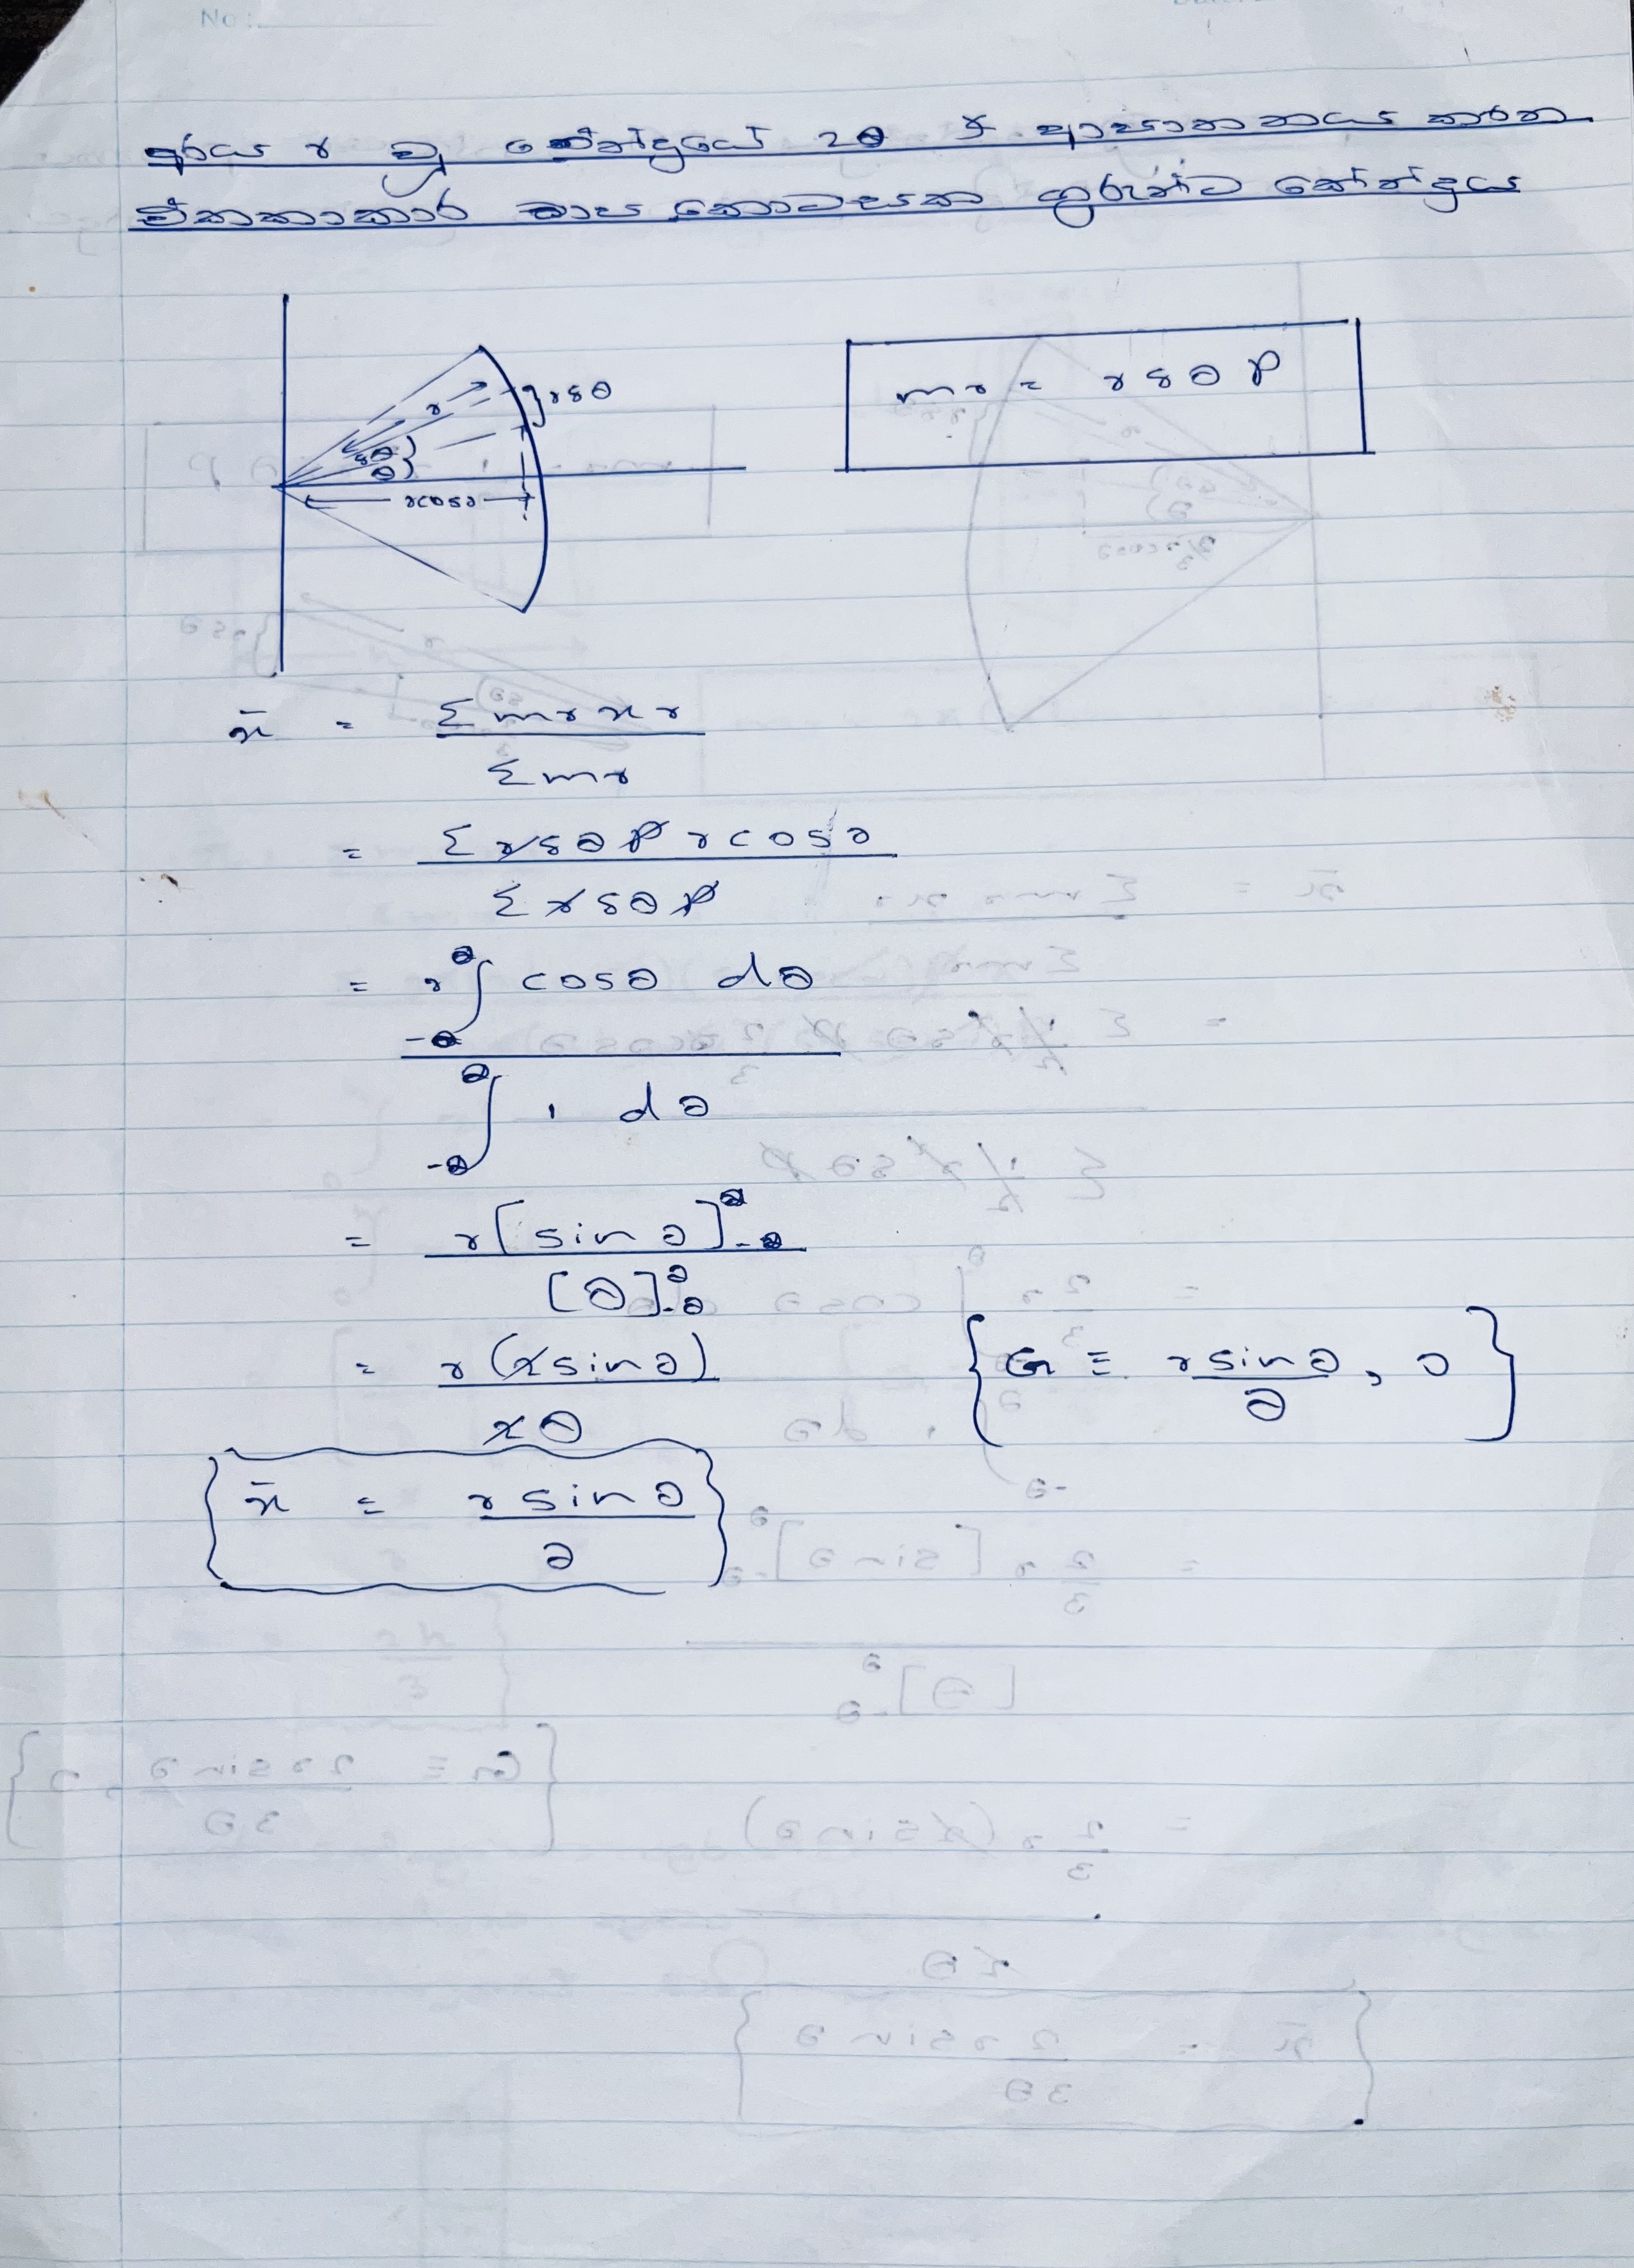 No :
අරය r වූ කේන්ද්‍රයේ 2θ ක ආපාතනයක් කරන
ඒකාකාර චාප කොටසක ගුරුත්ව කේන්ද්‍රය
r
rδθ
δθ
θ
rcosθ
mr = rδθρ
x̄ = Σmrxr / Σmr
= Σrδθρ rcosθ / Σrδθρ
= r∫_{-θ}^{θ} cosθ dθ / ∫_{-θ}^{θ} 1 dθ
= r[sinθ]_{-θ}^{θ} / [θ]_{-θ}^{θ}
= r(2sinθ) / 2θ
{G ≡ rsinθ/θ, 0}
x̄ = rsinθ / θ